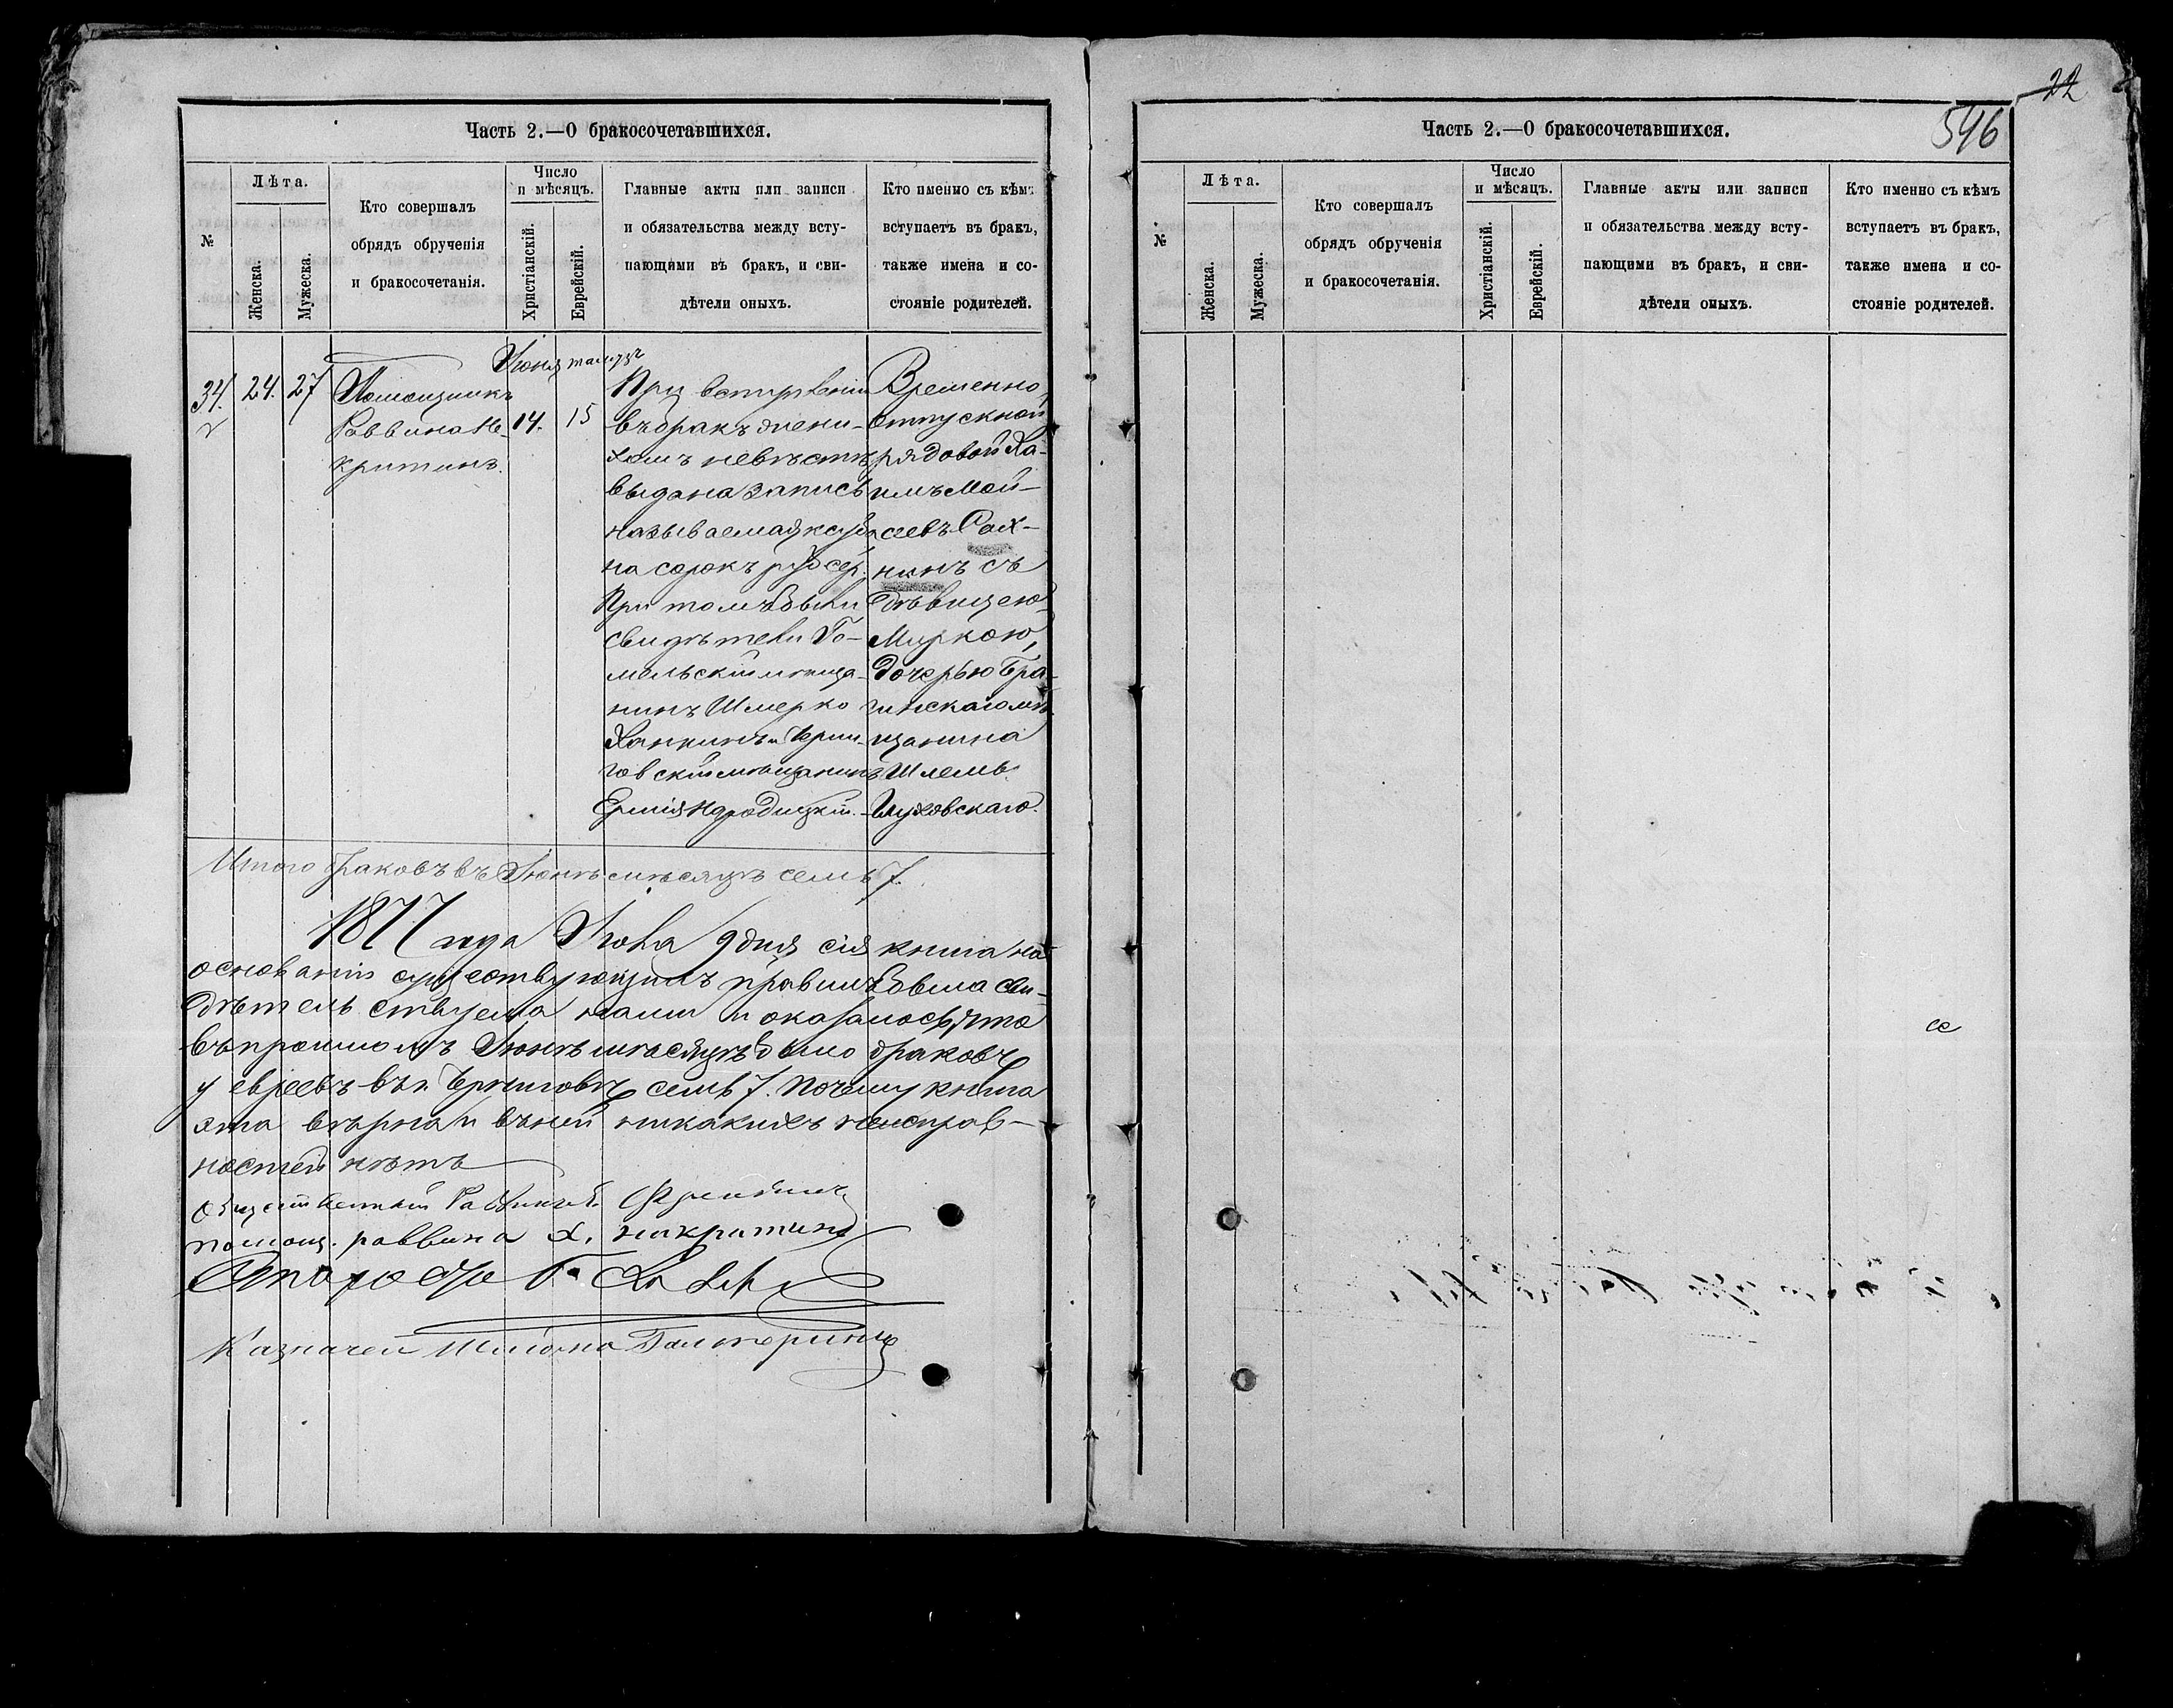 Часть 2.—О бракосочетавшихся.
№
Лѣта.
Женска.
Мужеска.
Кто совершалъ
обрядъ обрученія
и бракосочетанія.
Число
и мѣсяцъ.
Христіанскій.
Еврейскій.
Главные акты или записи
и обязательства между всту-
пающими въ бракъ, и сви-
дѣтели оныхъ.
Кто именно съ кѣмъ
вступаетъ въ бракъ,
также имена и со-
стояніе родителей.
34.
24.
27
Помощникъ
Раввина Не-
критинъ.
Іюня
14.
тамузъ
15
При вступленіи
въ бракъ жени-
хомъ невѣстѣ
выдана запись
называемая ксуба
на сорокъ руб сер.
При томъ были
свидѣтели Го-
мельскій мѣща-
нинъ Шмерко
Ханкинъ и Черни-
говскій мѣщанинъ
Временно
отпускной
рядовой Ха-
имъ Мой-
сеевъ Рах-
нинъ съ
дѣвицею
Миркою,
дочерью Бра-
гинскаго мѣ-
щанина
Шлемы
Глуховскаго.
Итого браковъ въ Іюнѣ мѣсяцѣ семь 7.
1877 года Іюля 9 дня сія книга на
основаніи существующихъ правилъ была сви-
дѣтельствуема нами и оказалось, что
въ прошломъ Іюнѣ мѣсяцѣ было браковъ
у евреевъ въ г. Черниговѣ семь 7. Почему книга
эта вѣрна и въ ней никакихъ неисправ-
ностей нѣтъ
Общественный Раввинъ
помощ. раввина Х. Некритинъ
Староста Г.
Казначей
Часть 2.—О бракосочетавшихся.
22
546
№
Лѣта.
Женска.
Мужеска.
Кто совершалъ
обрядъ обрученія
и бракосочетанія.
Число
и мѣсяцъ.
Христіанскій.
Еврейскій.
Главные акты или записи
и обязательства между всту-
пающими въ бракъ, и сви-
дѣтели оныхъ.
Кто именно съ кѣмъ
вступаетъ въ бракъ,
также имена и со-
стояніе родителей.